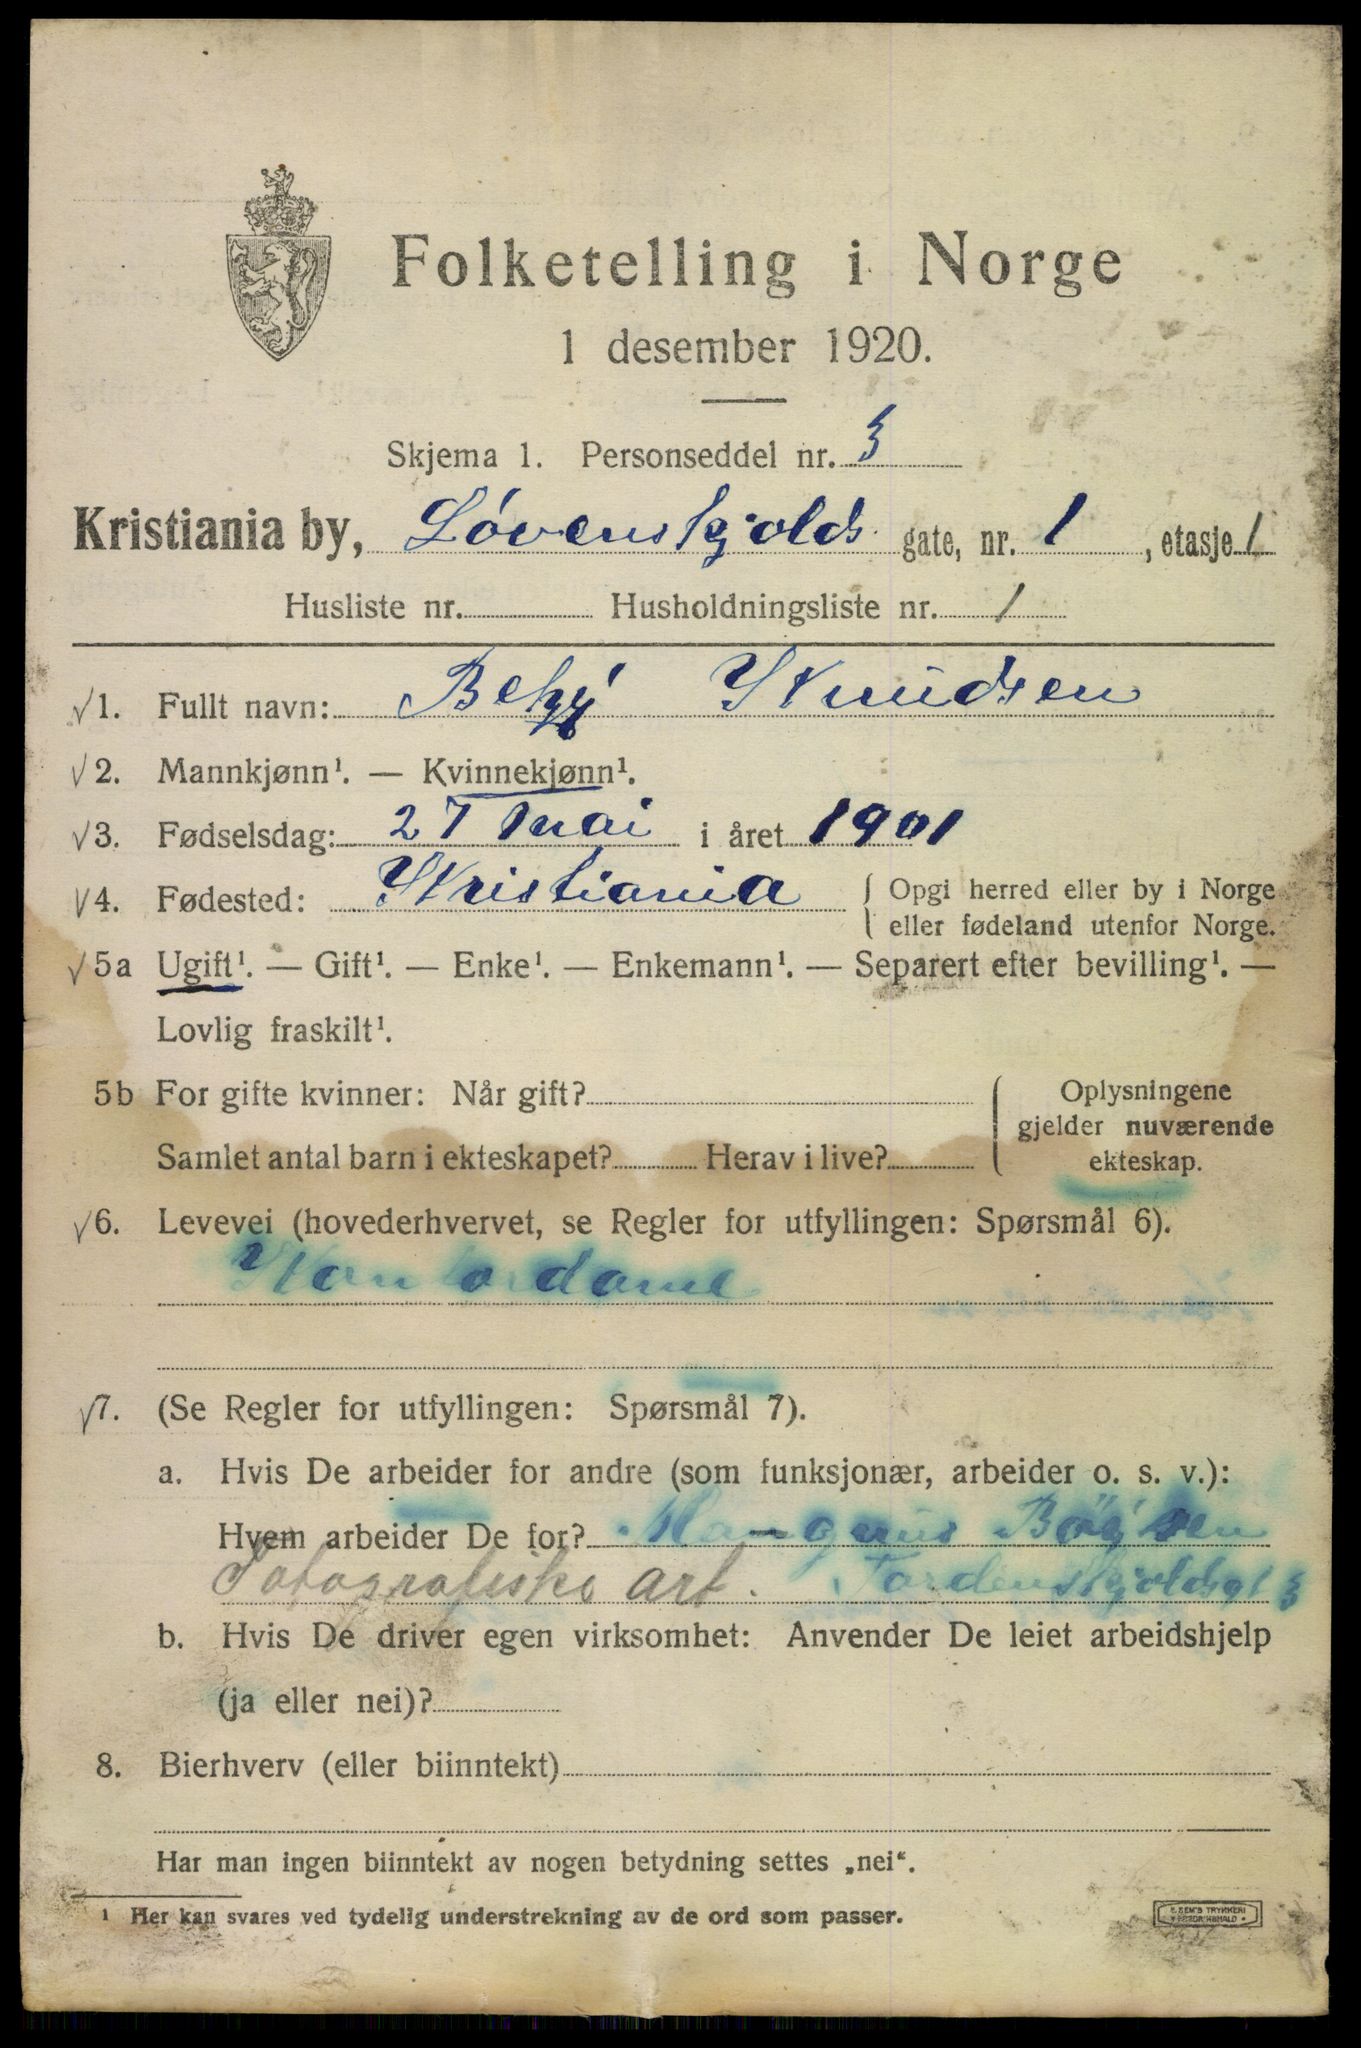 Folketelling i Norge
1 desember 1920.
Skjema 1. Personseddel nr. 3
Kristiania by, Løvenskjolds gate, nr. 1, etasje 1
Husliste nr. Husholdningsliste nr. 1
√1. Fullt navn: Betzy Knudsen
√2. Mannkjønn¹. — Kvinnekjønn¹.
√3. Fødselsdag: 27 mai i året 1901
√4. Fødested: Kristiania { Opgi herred eller by i Norge
eller fødeland utenfor Norge.
√5a Ugift¹. — Gift¹. — Enke¹. — Enkemann¹. — Separert efter bevilling¹. —
Lovlig fraskilt¹.
5b For gifte kvinner: Når gift? { Oplysningene
gjelder nuværende
Samlet antal barn i ekteskapet? Herav i live? ekteskap.
√6. Levevei (hovederhvervet, se Regler for utfyllingen: Spørsmål 6).
Kontordame
√7. (Se Regler for utfyllingen: Spørsmål 7).
a. Hvis De arbeider for andre (som funksjonær, arbeider o. s. v.):
Hvem arbeider De for? Mangnus
Fotografiske art. Tordenskjoldsgt 3
b. Hvis De driver egen virksomhet: Anvender De leiet arbeidshjelp
(ja eller nei)?
8. Bierhverv (eller biinntekt)
Har man ingen biinntekt av nogen betydning settes „nei“.
¹ Her kan svares ved tydelig understrekning av de ord som passer.
E. SEM'S TRYKKERI
FREDRIKSHALD